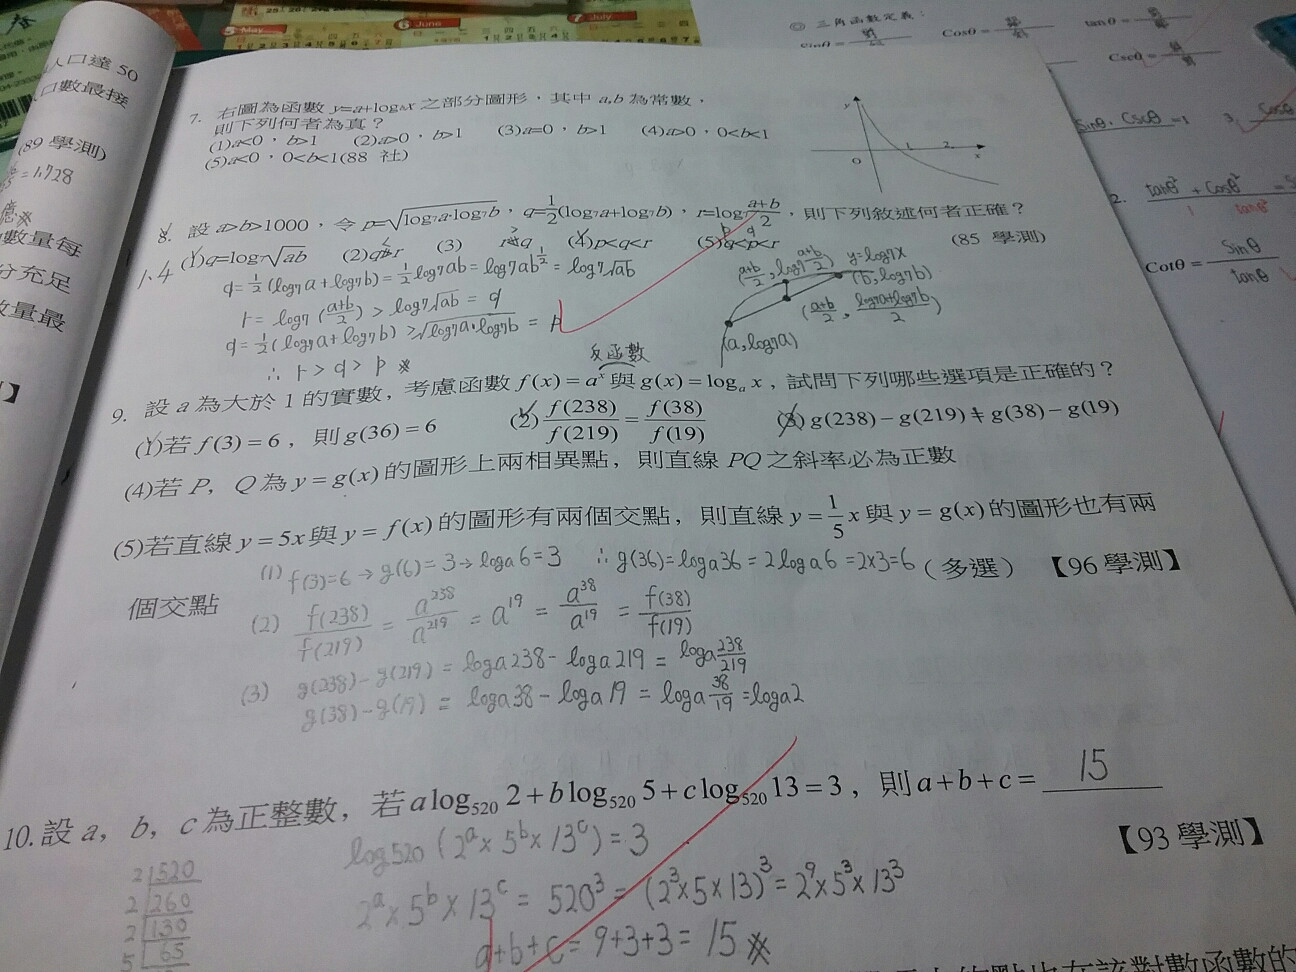 6 June
7 July
5 May
◎ 三角函數定義：
Sinθ =
Cosθ =
tanθ =
Cscθ =
人口達 50
口數最接
(89 學測)
= 1.728
數量每
分充足
數量最
】
7. 右圖為函數 y=a+log_b x 之部分圖形，其中 a,b 為常數，
則下列何者為真？
(1)a<0，b>1 (2)a>0，b>1 (3)a=0，b>1 (4)a>0，0<b<1
(5)a<0，0<b<1(88 社)
y
O
1
2
x
8. 設 a>b>1000，令 p=√(log₇a·log₇b)，q=1/2(log₇a+log₇b)，r=log₇(a+b)/2，則下列敘述何者正確？
(1)q=log₇√ab (2)q=r (3) r<q (4)p<q<r (5)q<p<r (85 學測)
1.4
q = 1/2 (log7 a + log7 b) = 1/2 log7 ab = log7 ab^(1/2) = log7 √ab
r = log7 (a+b/2) > log7 √ab = q
q = 1/2 (log7 a + log7 b) > √(log7 a · log7 b) = p
∴ r > q > p ※
(a+b/2, log7 a+b/2)
y=log7 x
(b, log7 b)
(a+b/2, log7a+log7b/2)
(a, log7 a)
反函數
9. 設 a 為大於 1 的實數，考慮函數 f(x) = aˣ 與 g(x) = log_a x，試問下列哪些選項是正確的？
(1)若 f(3) = 6，則 g(36) = 6 (2) f(238)/f(219) = f(38)/f(19) (3) g(238) − g(219) ≠ g(38) − g(19)
(4)若 P，Q 為 y = g(x) 的圖形上兩相異點，則直線 PQ 之斜率必為正數
(5)若直線 y = 5x 與 y = f(x) 的圖形有兩個交點，則直線 y = 1/5 x 與 y = g(x) 的圖形也有兩
個交點 (多選) 【96 學測】
(1) f(3)=6 → g(6) = 3 → loga 6 = 3 ∴ g(36) = loga 36 = 2 loga 6 = 2×3 = 6
(2) f(238)/f(219) = a^238/a^219 = a^19 = a^38/a^19 = f(38)/f(19)
(3) g(238) − g(219) = loga 238 − loga 219 = loga 238/219
g(38) − g(19) = loga 38 − loga 19 = loga 38/19 = loga 2
10. 設 a，b，c 為正整數，若 a log₅₂₀ 2 + b log₅₂₀ 5 + c log₅₂₀ 13 = 3，則 a + b + c = 15
【93 學測】
log520 (2^a × 5^b × 13^c) = 3
2^a × 5^b × 13^c = 520^3 = (2^3 × 5 × 13)^3 = 2^9 × 5^3 × 13^3
a+b+c = 9+3+3 = 15 ※
2 | 520
2 | 260
2 | 130
5 | 65
Sinθ · Cscθ = 1
3.
2. tanθ² + Cosθ² =
1
tanθ²
Cotθ = Sinθ/tanθ